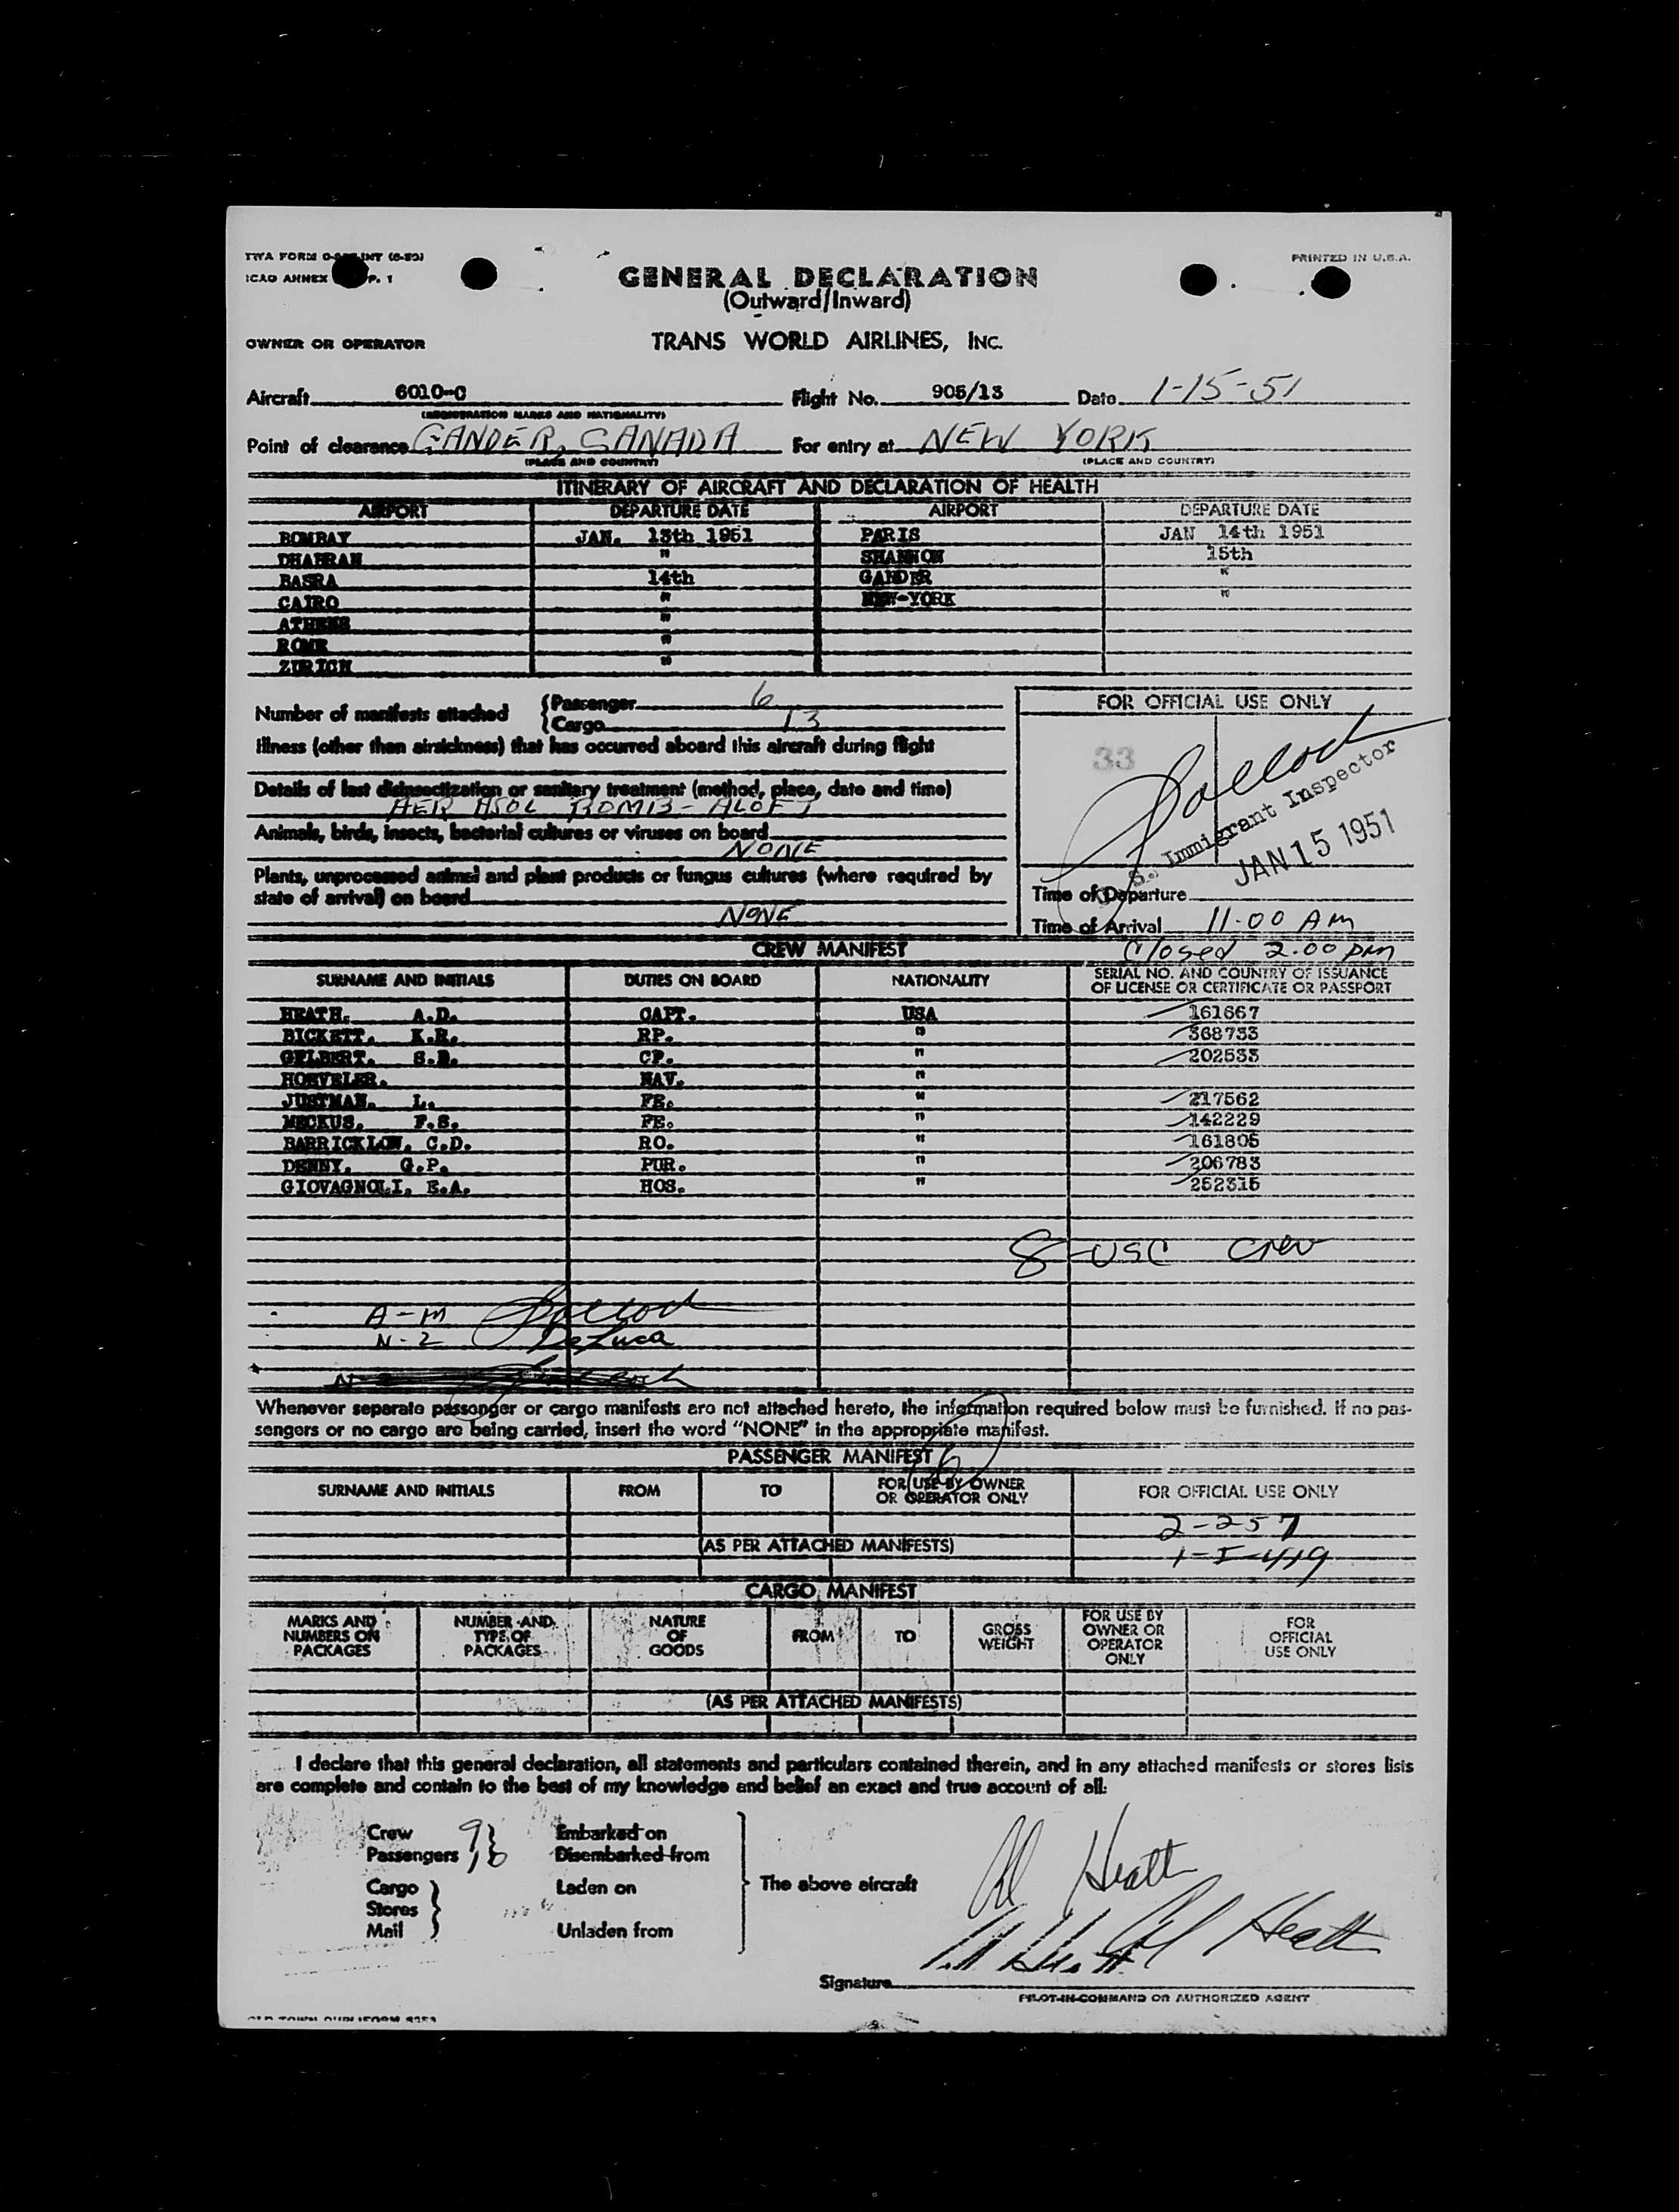 TWA FORM INT (6-50)
PRINTED IN U.S.A.
ICAO ANNEX P. 1
GENERAL DECLARATION
(Outward/Inward)
OWNER OR OPERATOR TRANS WORLD AIRLINES, INC.
Aircraft 6010-C Flight No. 905/13 Date 1-15-51
(REGISTRATION MARKS AND NATIONALITY)
Point of clearance GANDER, CANADA For entry at NEW YORK
(PLACE AND COUNTRY) (PLACE AND COUNTRY)
ITINERARY OF AIRCRAFT AND DECLARATION OF HEALTH
AIRPORT DEPARTURE DATE AIRPORT DEPARTURE DATE
BOMBAY JAN. 13th 1951 PARIS JAN 14th 1951
DHAHRAN " SHANNON 15th
BASRA 14th GANDER "
CAIRO " NEW-YORK "
ATHENS "
ROME "
ZURICH "
Number of manifests attached { Passenger 6
Cargo 13
FOR OFFICIAL USE ONLY
Illness (other than airsickness) that has occurred aboard this aircraft during flight
33
Details of last disinsectization or sanitary treatment (method, place, date and time)
AER ASOL BOMB - ALOFT
Immigrant Inspector
Animals, birds, insects, bacterial cultures or viruses on board
NONE
JAN 15 1951
Plants, unprocessed animal and plant products or fungus cultures (where required by
state of arrival) on board
NONE
Time of Departure
Time of Arrival 11-00 AM
Closed 2.00 pm
CREW MANIFEST
SURNAME AND INITIALS DUTIES ON BOARD NATIONALITY SERIAL NO. AND COUNTRY OF ISSUANCE
OF LICENSE OR CERTIFICATE OR PASSPORT
HEATH. A.D. CAPT. USA 161667
BICKETT. K.R. RP. " 368733
GELBERT. S.D. CP. " 202533
HOEVELER. NAV. "
JUSTMAN. L. FE. " 217562
MECKUS. F.S. FE. " 142229
BARRICKLOW. C.D. RO. " 161805
DENNY. G.P. PUR. " 206783
GIOVAGNOLI. E.A. HOS. " 252315
8 - USC Crew
A - M
N - 2 DeLuca
Whenever separate passenger or cargo manifests are not attached hereto, the information required below must be furnished. If no pas-
sengers or no cargo are being carried, insert the word "NONE" in the appropriate manifest.
PASSENGER MANIFEST
SURNAME AND INITIALS FROM TO FOR USE BY OWNER
OR OPERATOR ONLY FOR OFFICIAL USE ONLY
2-257
(AS PER ATTACHED MANIFESTS)
1-I-419
CARGO MANIFEST
MARKS AND
NUMBERS ON
PACKAGES
NUMBER AND
TYPE OF
PACKAGES
NATURE
OF
GOODS
FROM
TO
GROSS
WEIGHT
FOR USE BY
OWNER OR
OPERATOR
ONLY
FOR
OFFICIAL
USE ONLY
(AS PER ATTACHED MANIFESTS)
I declare that this general declaration, all statements and particulars contained therein, and in any attached manifests or stores lists
are complete and contain to the best of my knowledge and belief an exact and true account of all:
Crew 9 Embarked on
Passengers Disembarked from
Cargo Laden on
The above aircraft
Stores
Mail Unladen from
Al Heath
Al Heath
Al Heath
Signature
PILOT-IN-COMMAND OR AUTHORIZED AGENT